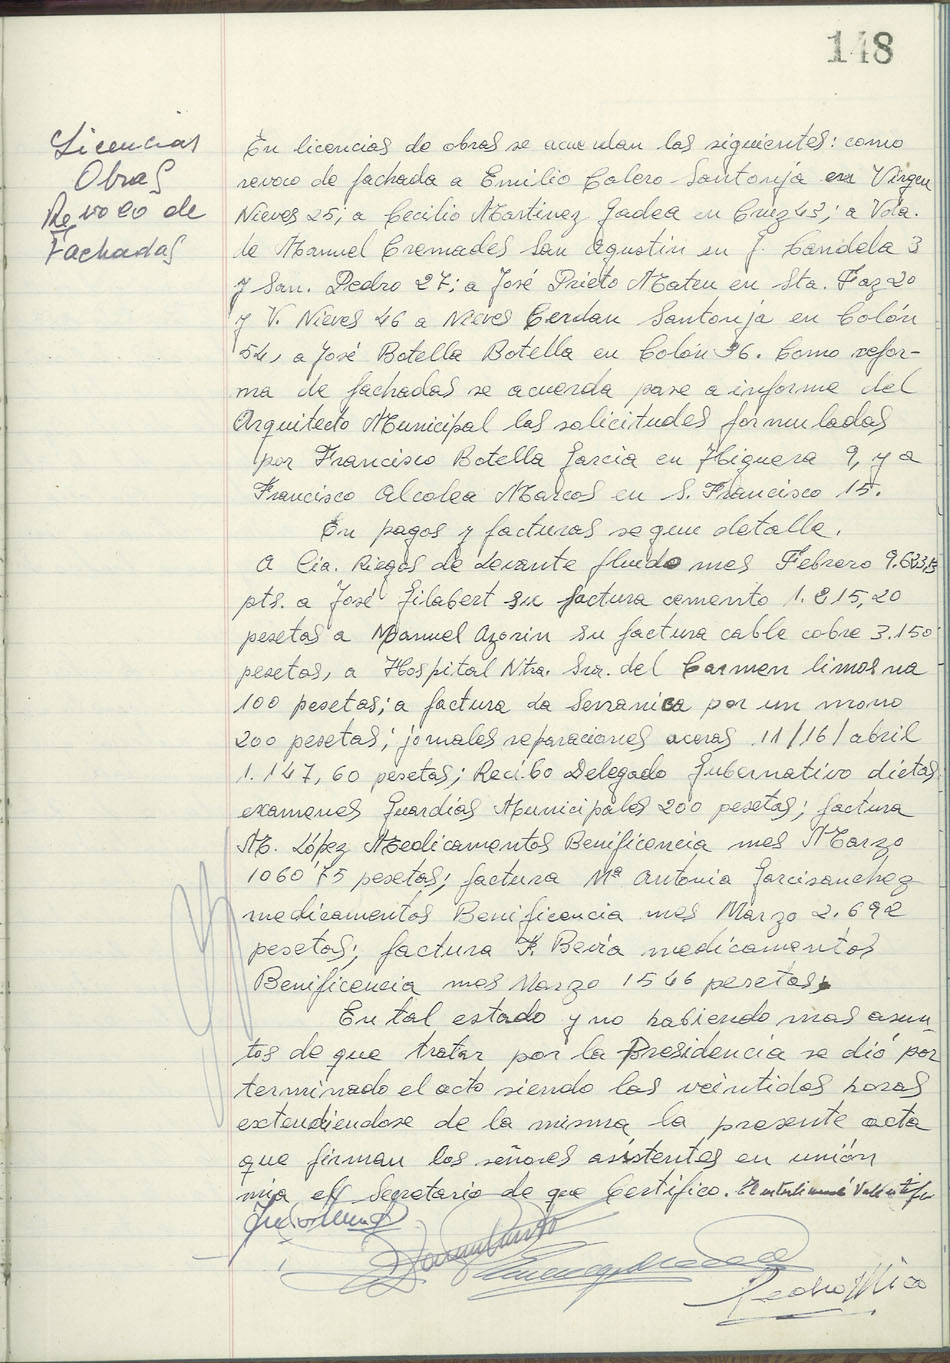 148
Licencias
Obras
Revoco de
Fachadas
En licencias de obras se acuerdan las siguientes: como
revoco de fachada a Emilio Calero Santonja en Virgen
Nieves 25; a Cecilio Martinez Jadea en Cruz 43; a Vda.
de Manuel Cremades San Agustin en J. Candela 3
y San. Pedro 27; a José Prieto Mateu en Sta. Faz 20
y V. Nieves 46 a Nieves Cerdan Santonja en Colón
54, a José Botella Botella en Colón 36. Como refor-
ma de fachadas se acuerda pase a informe del
Arquitecto Municipal las solicitudes formuladas
por Francisco Botella Garcia en Higuera 9, y a
Francisco Alcolea Marcos en S. Francisco 15.
En pagos y facturas segun detalle.
A Cia. Riegos de Levante fluido mes Febrero
pts. a José Gilabert su factura cemento 1.815,20
pesetas a Manuel Azorin su factura cable cobre 3.150
pesetas, a Hospital Ntra. Sra. del Carmen limosna
100 pesetas; a factura La Serranica por un mono
200 pesetas; jornales reparaciones aceras 11/16/abril
1.147,60 pesetas; Recibo Delegado Gubernativo dietas
examenes Guardias Municipales 200 pesetas; factura
M. López Medicamentos Benificencia mes Marzo
1060'75 pesetas; factura Mª Antonia Garcisanchez
medicamentos Benificencia mes Marzo 2.692
pesetas; factura F. Bevia medicamentos
Benificencia mes Marzo 1546 pesetas;
En tal estado y no habiendo mas asun-
tos de que tratar por la Presidencia se dió por
terminado el acto siendo las veintidos horas
extendiendose de la misma la presente acta
que firman los señores asistentes en unión
mia el Secretario de que Certifico.
Pedro Mico